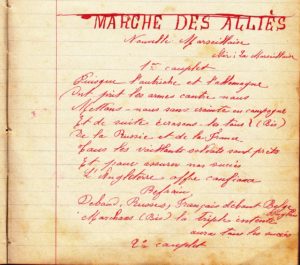 MARCHE DES ALLIÈS
Nouvelle Marseillaise
Air: La Marseillaise
1er couplet
Puisque l'autriche et l'allemagne
Ont prit les armes contre nous
Mettons-nous sans crainte en campagne
Et de suite écrasons les tous! (Bis)
De la Russie et de la France
Tous les vaillants soldats sont prêts
Et pour assurer nos succès
L'Angleterre offre confiance
Refrain
Debout, Russes, Français debout Belge
Anglais
Marchons (Bis) la triple entente
aura tous les succès
2e couplet